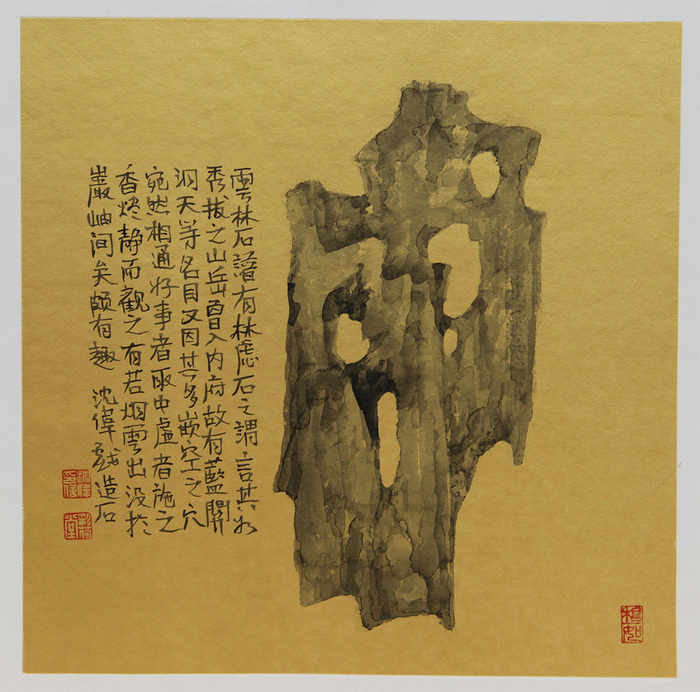 雲林石譜有林慮石之謂言其如
秀拔之山岳曾入内府故有藍關
洞天等名目又因其多嵌空之穴
宛然相通好事者取中虛者施之
香燼静而觀之有若烟雲出没於
巖岫间矣頗有趣 沈偉戲造石
穆如